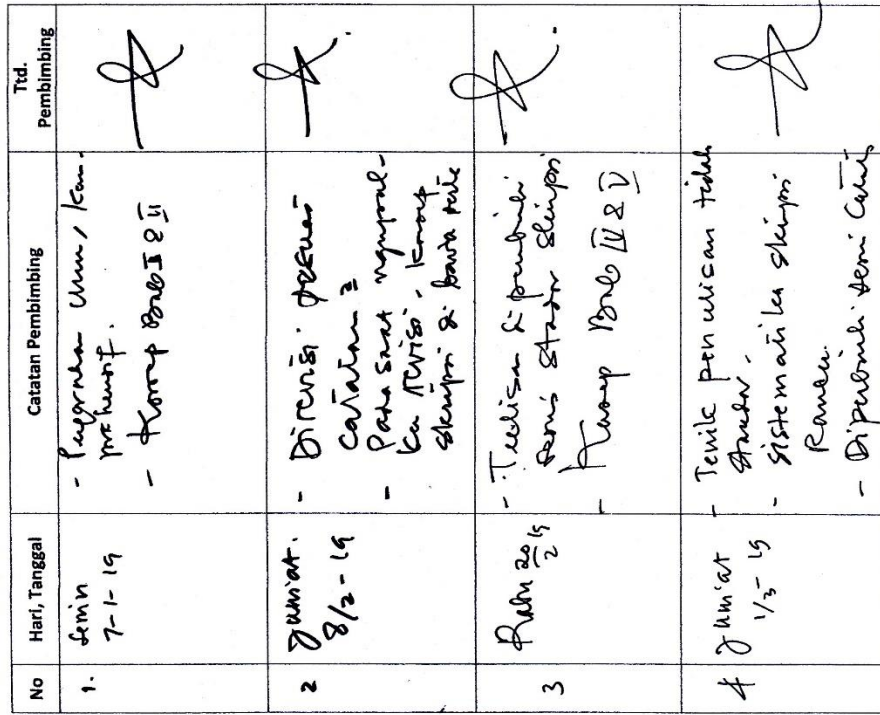 No Hari, Tanggal Catatan Pembimbing Ttd. Pembimbing
1. Senin
7-1-19
- Pengarahan Umum, Kom-
prehensif.
- Konsep Bab I & II
2 Jum'at.
8/2-19
- Direvisi sesuai
catatan2
- Pada saat
ka revisi, konsep
skripsi di bawa serta
3 Rabu 20/2 19
- Tulisan diperbaiki
standar skripsi
- Konsep Bab IV & V
4 Jum'at
1/3-19
- Teknik penulisan tidak
standar.
- sistematika skripsi
- Diperbaiki